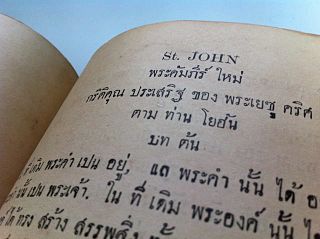 St. JOHN
พระคัมภีร์ ใหม่
กริติคุณ ประเสริฐ ของ พระเยซู คริศ
ตาม ท่าน โยฮัน
บท ต้น
ที่ เดิม พระคำ เปน อยู่, แล พระคำ นั้น ได้ อ
นั้น เปน พระเจ้า. ใน ที่ เดิม พระองค์ นั้น ไ
ได้ ทรง สร้าง สรรพสิ่ง